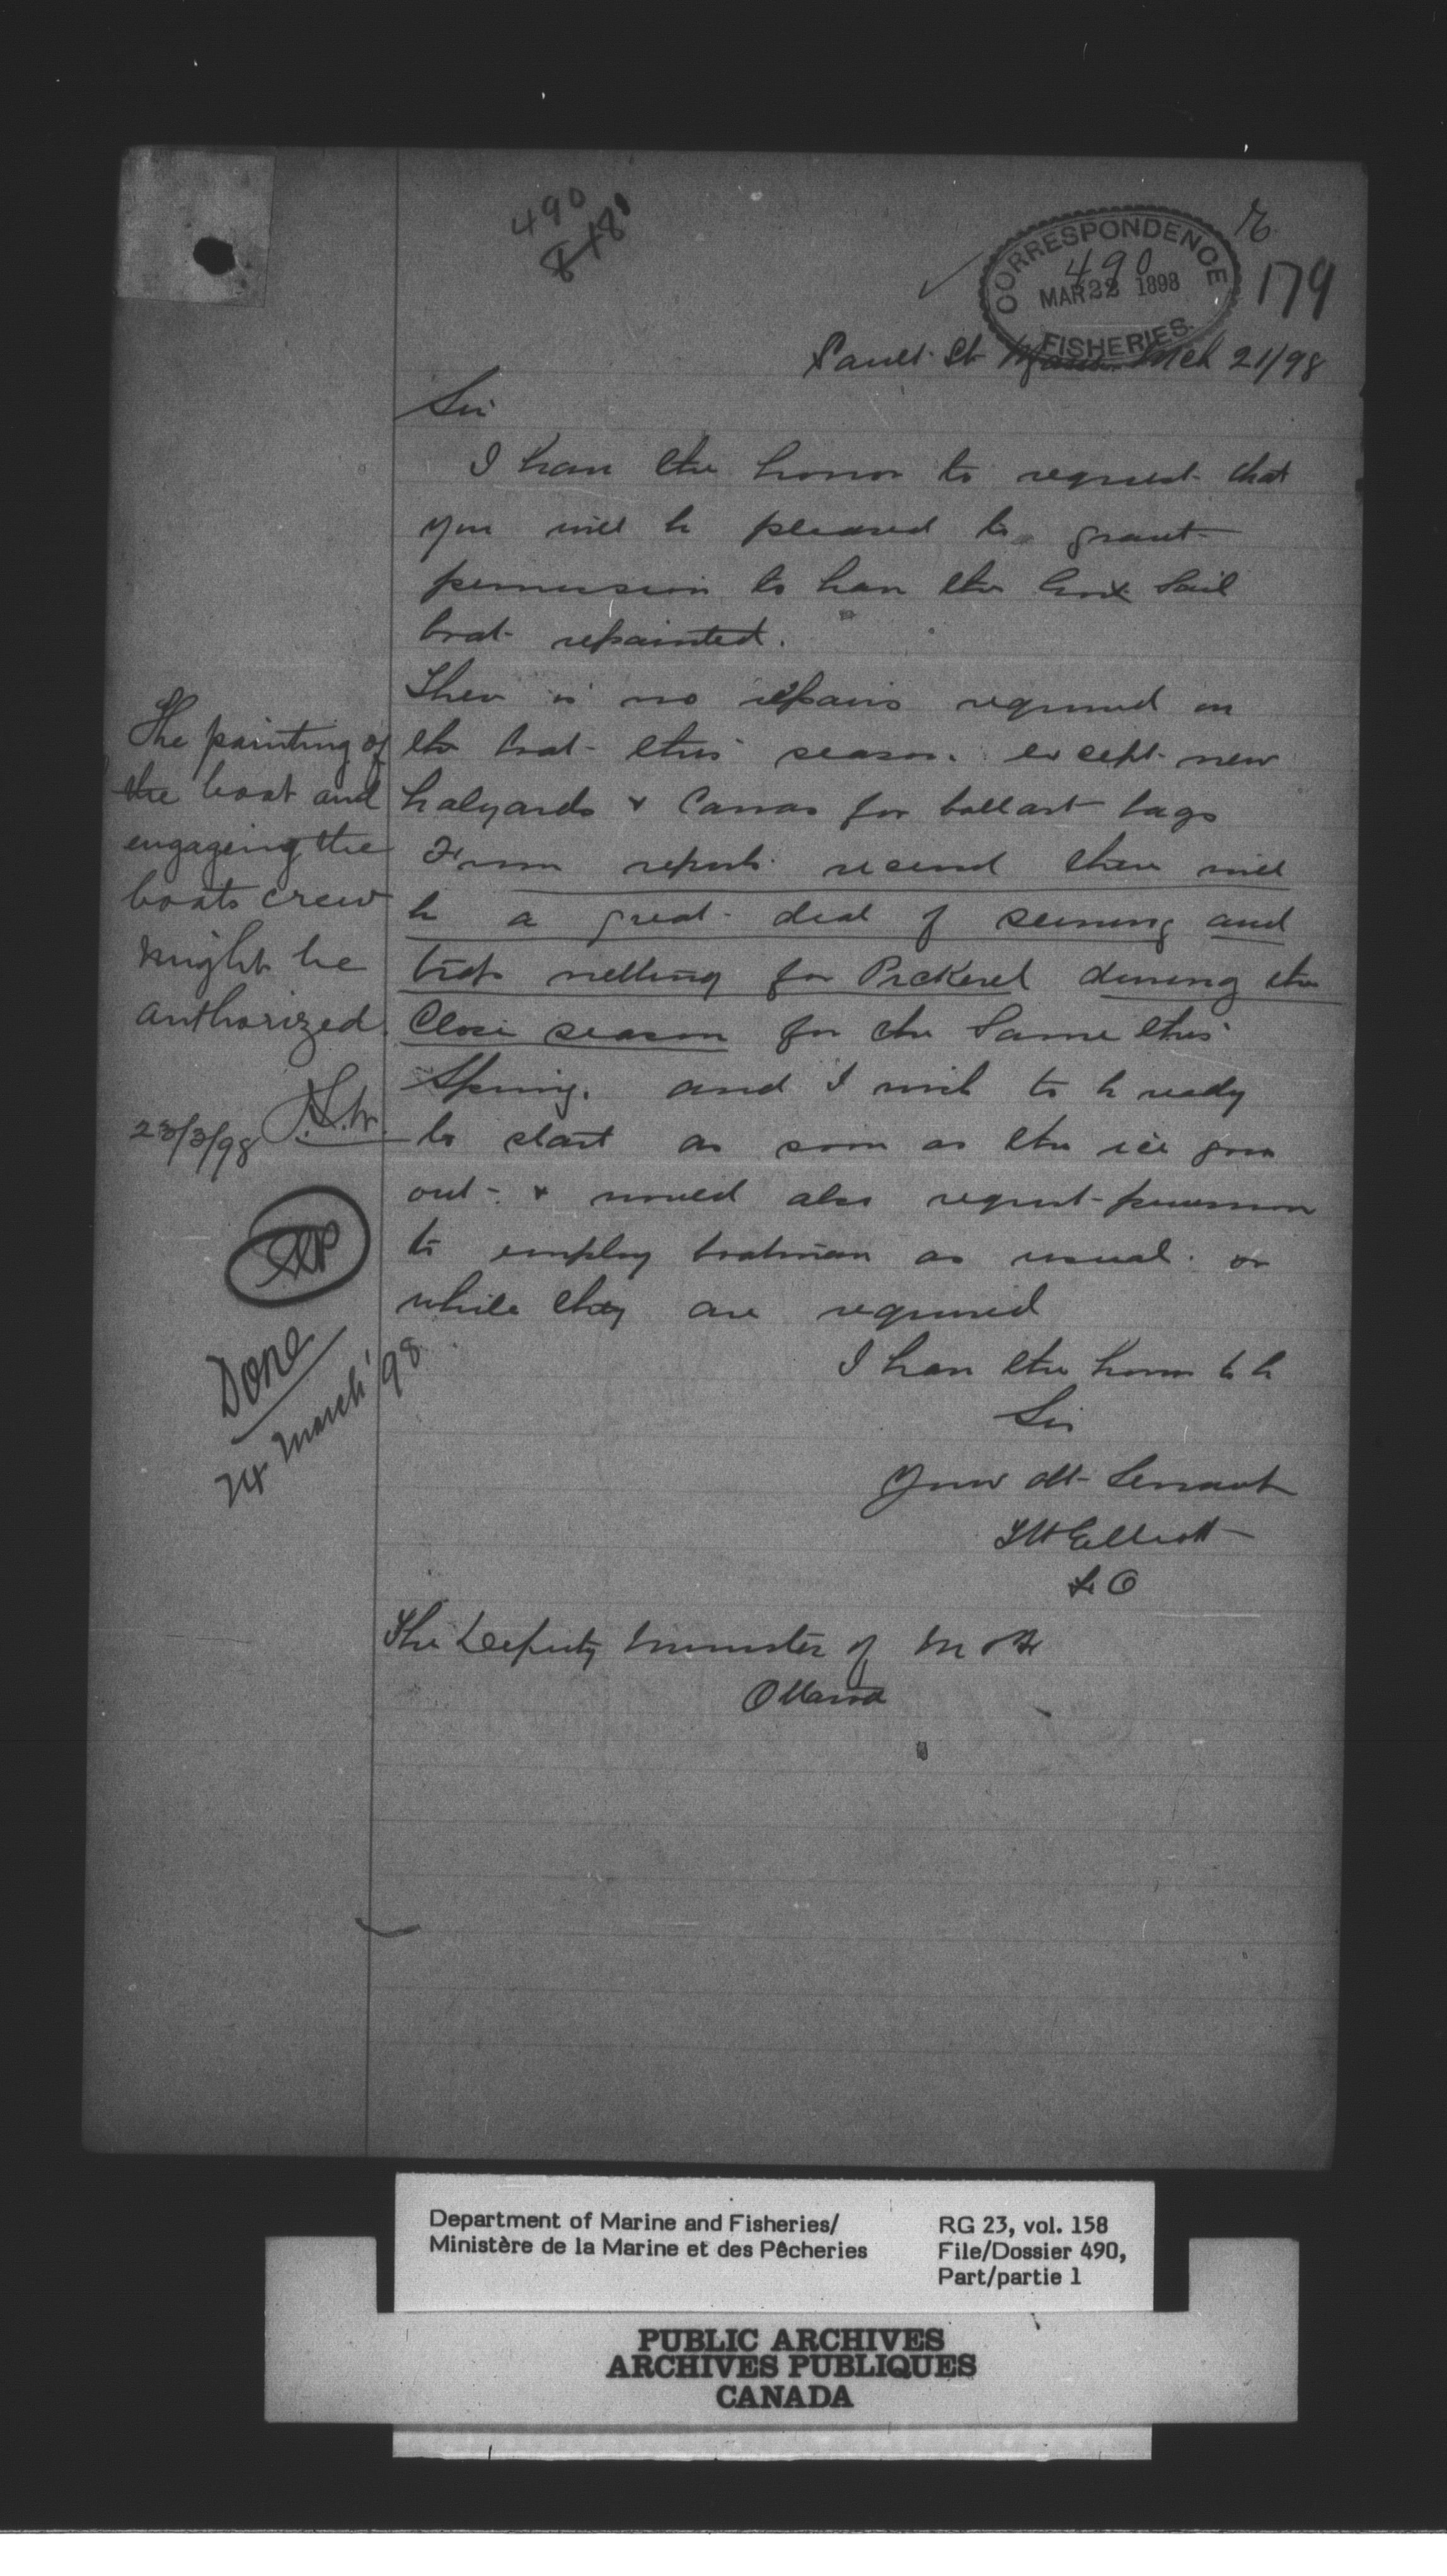 490
CORRESPONDENCE
490
MAR 22 1898
FISHERIES
179
Sault St Marie Mch 21/98
Sir
I have the honor to request that
you will be pleased to grant
permission to have the Govt Sail
boat repainted.
There is no repairs required on
the boat this season except new
halyards & Canvas for ballast bags
From reports received there will
be a great deal of seining and
trap netting for Pickerel during the
Close season for the Same this
Spring. and I wish to be ready
to start as soon as the ice goes
out & would also request permission
to employ boatman as usual or
while they are required
I have the honor to be
Sir
Your obt Servant
Elliott
F. O
The Deputy Minister of M & F
Ottawa
The painting of
the boat and
engageing the
boats crew
might be
authorized.
23/3/98
Done
24 March '98
Department of Marine and Fisheries/
Ministère de la Marine et des Pêcheries
RG 23, vol. 158
File/Dossier 490,
Part/partie 1
PUBLIC ARCHIVES
ARCHIVES PUBLIQUES
CANADA